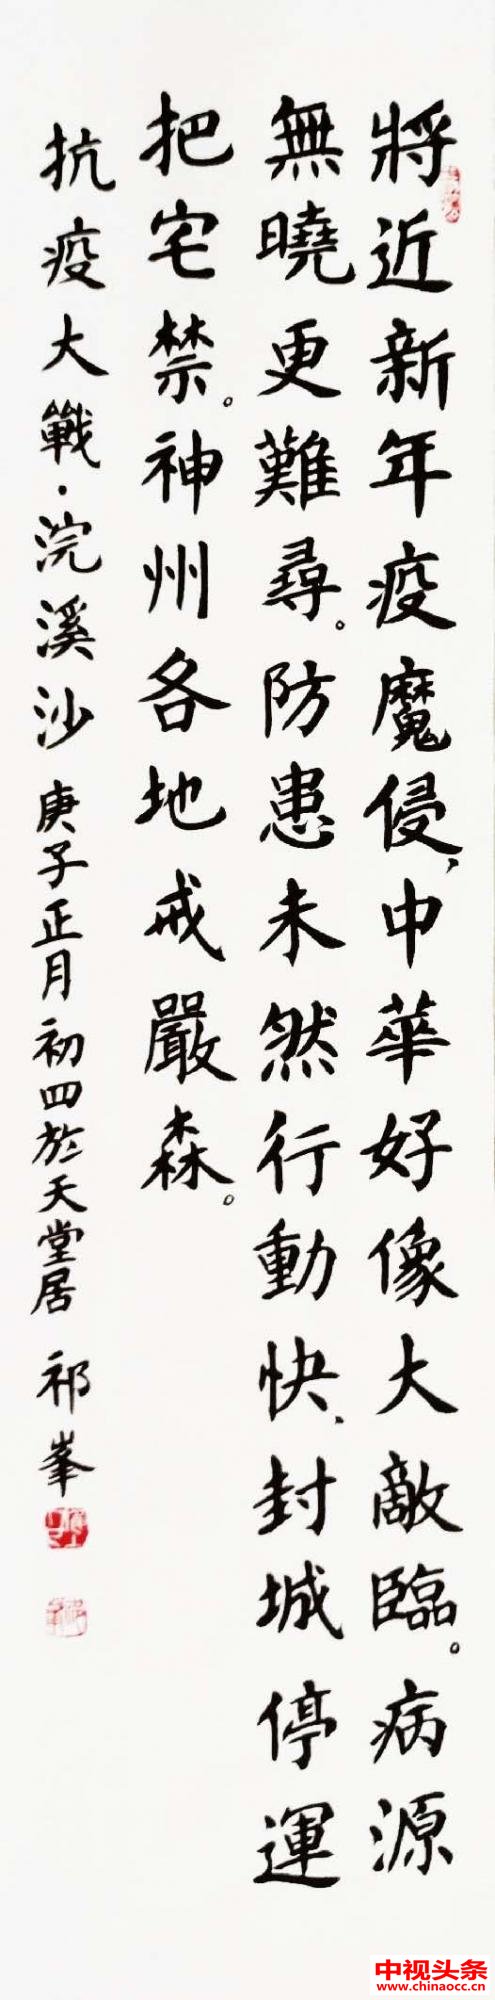 將近新年疫魔侵、中華好像大敵臨。病源
無曉更難尋。防患未然行動快、封城停運
把宅禁。神州各地戒嚴森。
抗疫大戰·浣溪沙 庚子正月初四於天堂居 祁峯
中视头条
www.chinaocc.cn